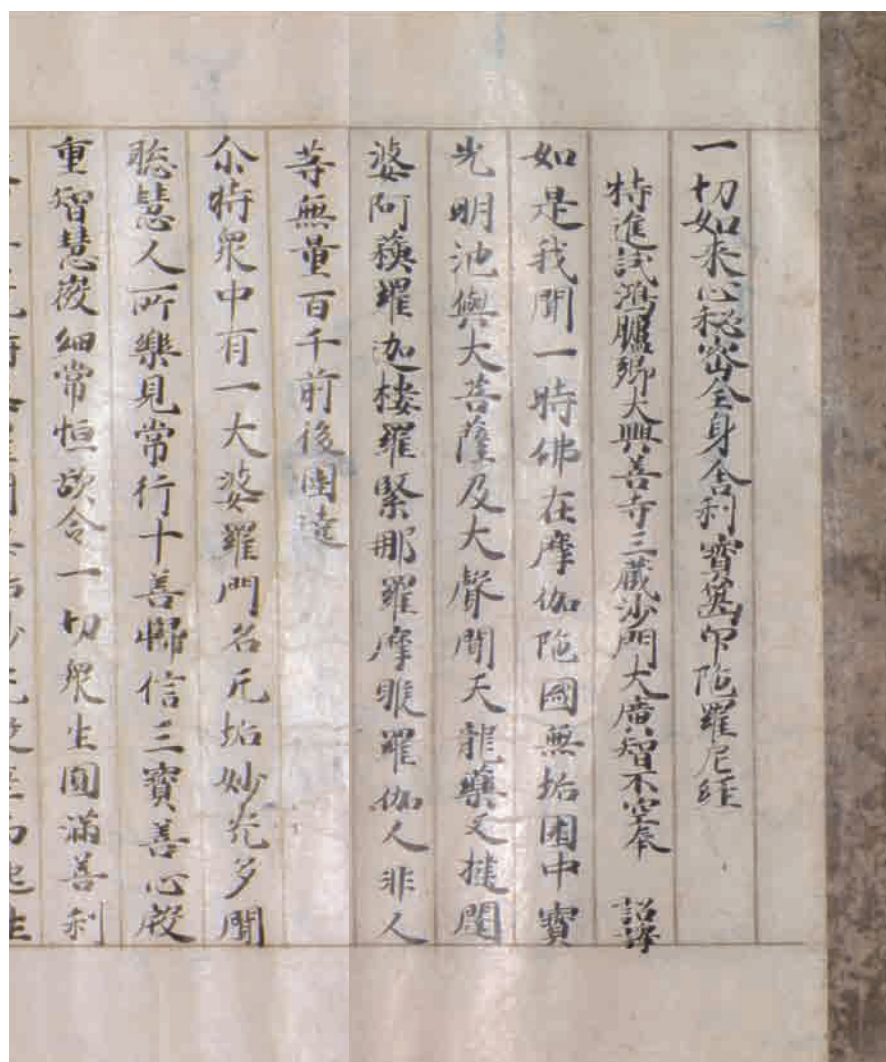 一切如来心秘密全身舎利寶篋印陀羅尼経
特進試鴻臚卿大興善寺三藏沙門大廣智不空奉 詔譯
如是我聞一時佛在摩伽陁國無垢園中寶
光明池與大菩薩及大聲聞天龍藥叉揵闥
婆阿蘓羅迦楼羅緊那羅摩睺羅伽人非人
等無量百千前後圍遶
尒時衆中有一大婆羅門名无垢妙光多聞
聡慧人所樂見常行十善歸信三寶善心殷
重智慧微細常恒欲令一切衆生圓滿善利